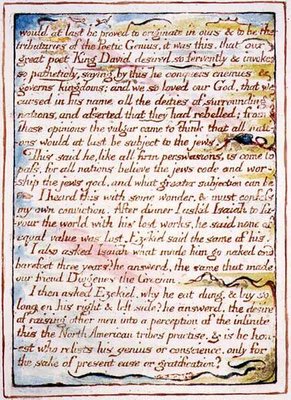 would at last be proved to originate in ours & to be the
tributaries of the Poetic Genius, it was this. that our
great poet King David desired so fervently & invokes
so patheticly, saying by this he conquers enemies &
governs kingdoms; and we so loved our God, that we
cursed in his name all the deities of surrounding
nations, and asserted that they had rebelled; from
these opinions the vulgar came to think that all nati-
ons would at last be subject to the jews.
This said he, like all firm perswasions, is come to
pass, for all nations believe the jews code and wor-
ship the jews god, and what greater subjection can be
I heard this with some wonder, & must confess
my own conviction. After dinner I ask'd Isaiah to fa-
vour the world with his lost works, he said none of
equal value was lost. Ezekiel said the same of his.
I also asked Isaiah what made him go naked and
barefoot three years? he answerd, the same that made
our friend Diogenes the Grecian.
I then asked Ezekiel. why he eat dung, & lay so
long on his right & left side? he answerd, the desire
of raising other men into a perception of the infinite
this the North American tribes practise, & is he hon-
est who resists his genius or conscience. only for
the sake of present ease or gratification?